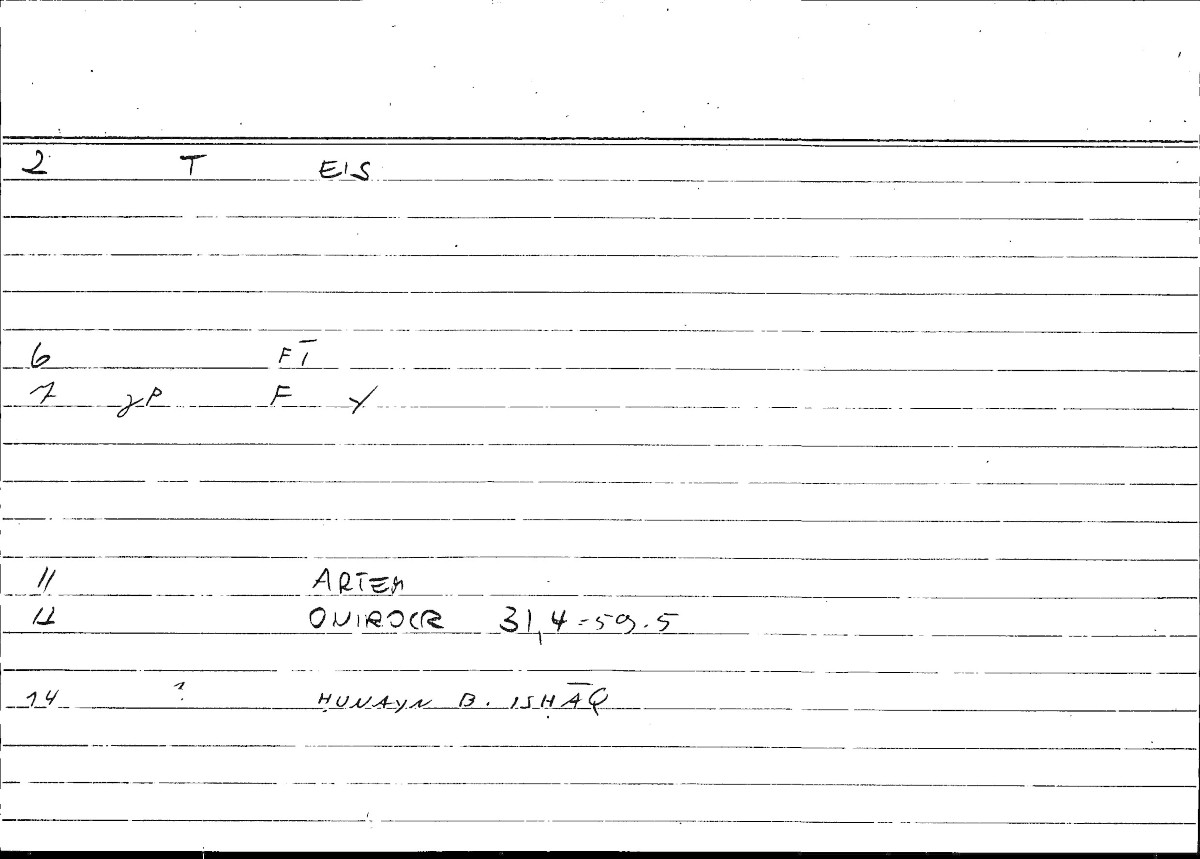 2 T EIS
6 FĪ
7 γP F γ
11 ARTEM
12 ONIROCR 31,4-59.5
14 ? HUNAYN B. ISḤĀQ